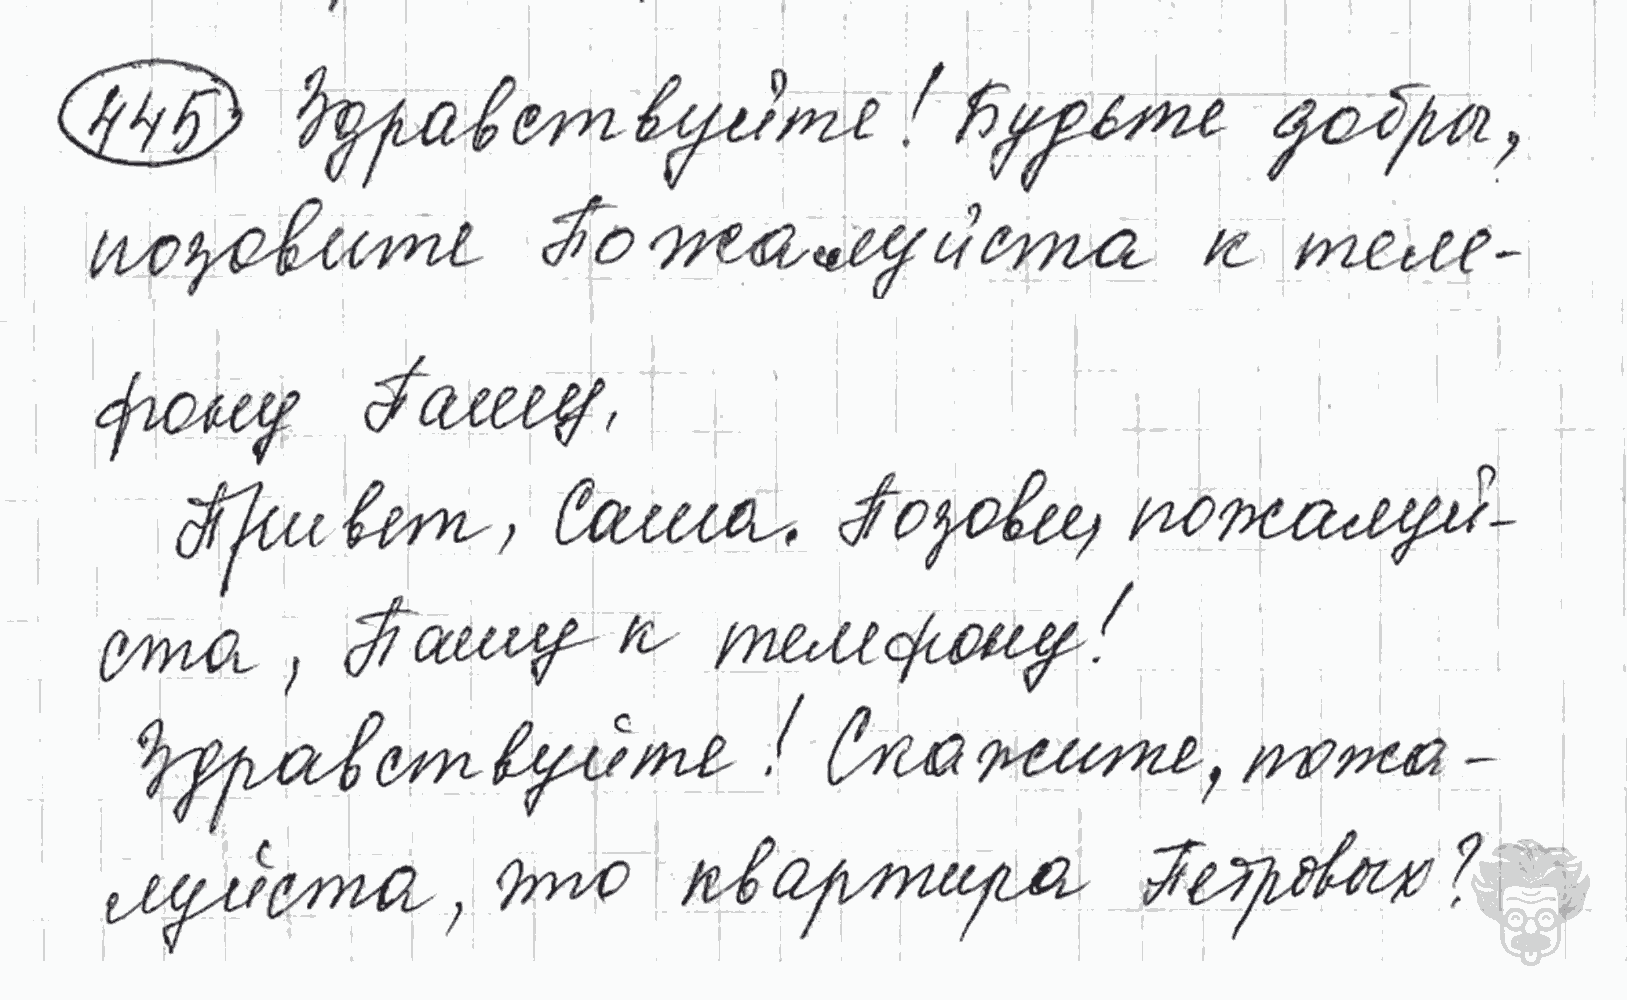 445 Здравствуйте! Будьте добры,
позовите Пожалуйста к теле-
фону Пашу.
Привет, Саша. Позови, пожалуй-
ста, Пашу к телефону!
Здравствуйте! Скажите, пожа-
луйста, это квартира Петровых?